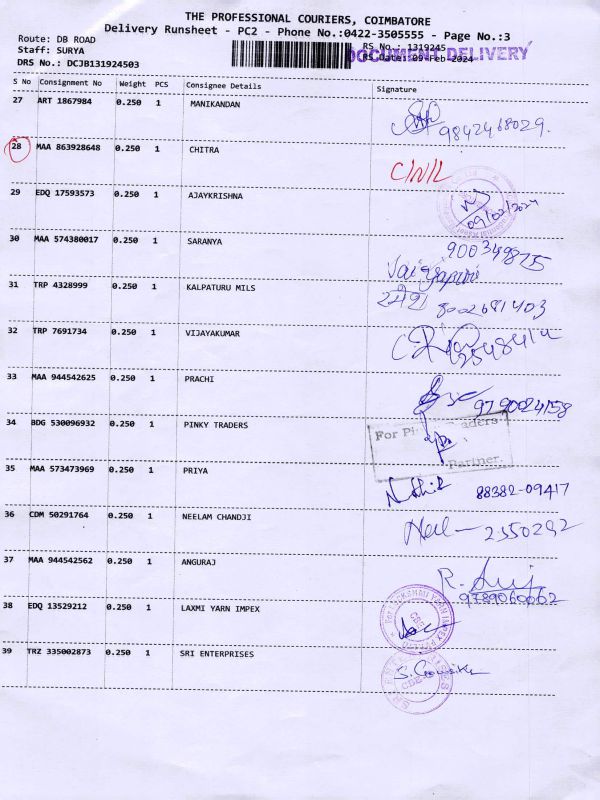 THE PROFESSIONAL COURIERS, COIMBATORE
Delivery Runsheet - PC2 - Phone No.:0422-3505555 - Page No.:3
Route: DB ROAD
Staff: SURYA
DRS No.: DCJB131924503
RS No.: 1319245
RS Date: 09-Feb-2024
DOCUMENT DELIVERY
S No Consignment No Weight PCS Consignee Details Signature
27 ART 1867984 0.250 1 MANIKANDAN
9842468029.
28 MAA 863928648 0.250 1 CHITRA
29 EDQ 17593573 0.250 1 AJAYKRISHNA
09/02/2024
30 MAA 574380017 0.250 1 SARANYA
900349875
31 TRP 4328999 0.250 1 KALPATURU MILS
8002681403
32 TRP 7691734 0.250 1 VIJAYAKUMAR
33 MAA 944542625 0.250 1 PRACHI
9790024158
34 BDG 530096932 0.250 1 PINKY TRADERS
For Pinky Traders
Partner.
35 MAA 573473969 0.250 1 PRIYA
88382-09417
36 CDM 50291764 0.250 1 NEELAM CHANDJI
2350292
37 MAA 944542562 0.250 1 ANGURAJ
9789060662
38 EDQ 13529212 0.250 1 LAXMI YARN IMPEX
39 TRZ 335002873 0.250 1 SRI ENTERPRISES